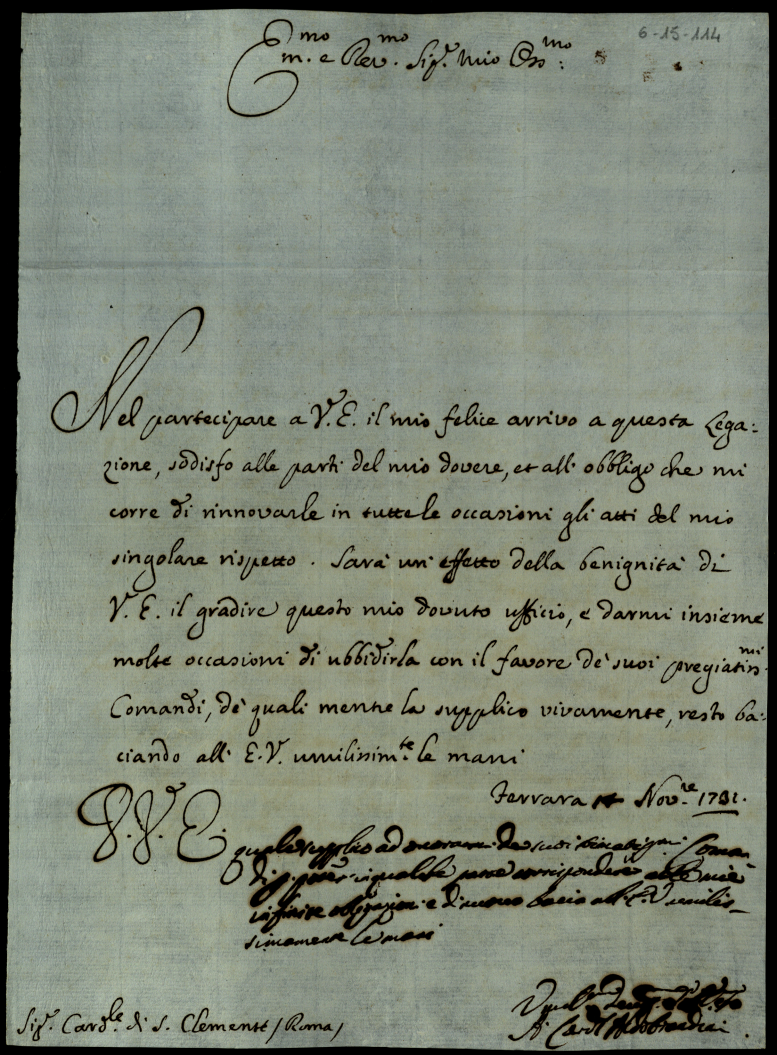 6-15-114
Em.mo e Rev.mo Sig.r mio Oss.mo:
Nel partecipare a V.E. il mio felice arrivo a questa Lega:
zione, sodisfo alle parti del mio dovere, et all' obbligo che mi
corre di rinnovarle in tutte le occasioni gli atti del mio
singolare rispetto. Sarà un' effetto della benignità di
V.E. il gradire questo mio dovuto ufficio, e darmi insieme
molte occasioni di ubbidirla con il favore de' suoi pregiatiss.mi
Comandi, de' quali mentre la supplico vivamente, resto ba:
ciando all' E.V. umilissim.te le mani
Ferrara Nov.re 1731.
V.E.
quale supplico ad onorarmi de suoi Coman
di corrispondere alle mie
infinite obligazioni e di nuovo bacio all' E.V. umilis
simamente le mani
A: Card.l Aldobrandini
Sig.r Card.le di S. Clemente / Roma /